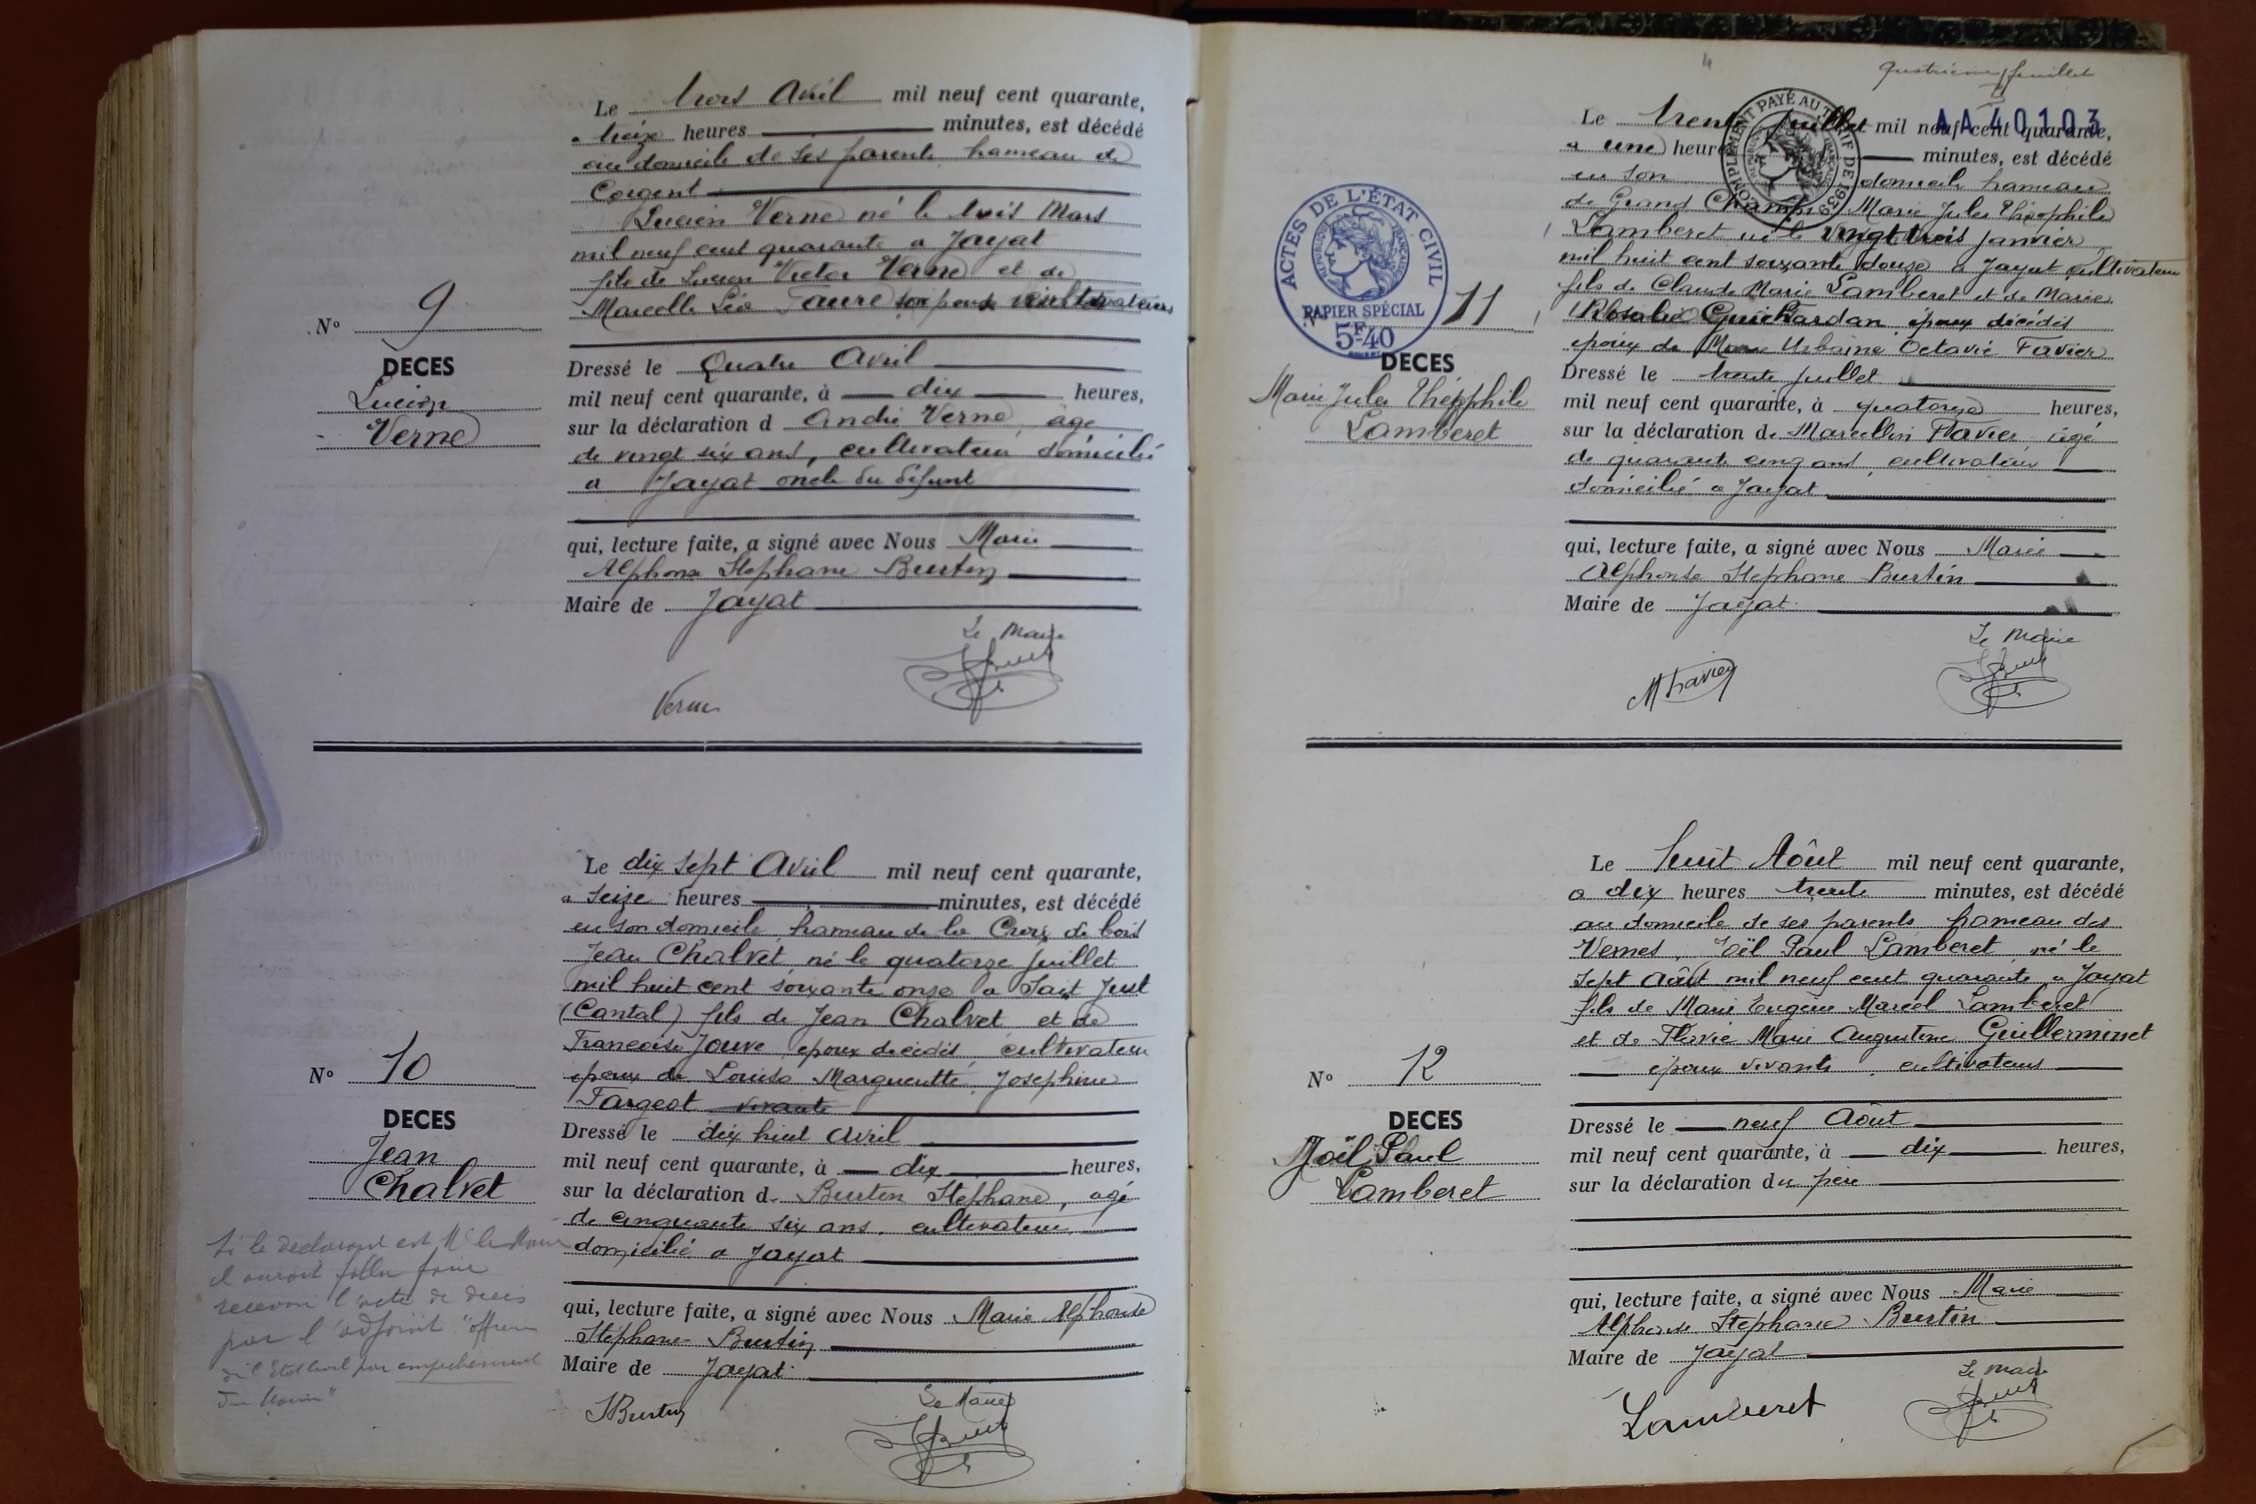 Le trois Avril mil neuf cent quarante,
a treize heures minutes, est décédé
au domicile de ses parents hameau de
Corgent
Lucien Verne né le trois Mars
mil neuf cent quarante a Jayat
fils de Lucien Victor Verne et de
Marcelle Léa Faure son épouse cultivateurs
N° 9
DECES
Lucien
Verne
Dressé le Quatre Avril
mil neuf cent quarante, à dix heures,
sur la déclaration d André Verne agé
de vingt six ans, cultivateur domicilié
a Jayat oncle du défunt
qui, lecture faite, a signé avec Nous Marie
Alphonse Stephane Burtin
Maire de Jayat
Le Maire
Verne
Le dix sept Avril mil neuf cent quarante,
a seize heures minutes, est décédé
en son domicile hameau de la Croix de bois
Jean Chalvet, né le quatorze Juillet
mil huit cent soixante onze a Saint Just
(Cantal) fils de Jean Chalvet et de
Francoise Jouve epoux décédés cultivateur
epoux de Louise Marguerite Josephine
Fargeot vivante
N° 10
DECES
Jean
Chalvet
Dressé le dix huit Avril
mil neuf cent quarante, à dix heures,
sur la déclaration de Burtin Stephane, agé
de cinquante six ans, cultivateur
domicilié a Jayat
qui, lecture faite, a signé avec Nous Marie Alphonse
Stéphane Burtin
Maire de Jayat
Si le declarant est Mr le Maire
il aurait fallu faire
recevoir l'acte de deces
par l'adjoint "officier
de l'Etat Civil par empechement
du Maire"
SBurtin
Le Maire
4
quatrieme feuillet
AA 40103
COMPLEMENT PAYÉ AU TARIF DE 1939
Le trente Juillet mil neuf cent quarante,
a une heure minutes, est décédé
en son domicile hameau
de Grand Champ Marie Jules Théophile
Lamberet né le vingt trois Janvier
mil huit cent soixante douze a Jayat cultivateur
fils de Claude Marie Lamberet et de Marie
Rosalie Guichardan époux décédés
epoux de Marie Urbaine Octavie Favier
ACTES DE L'ÉTAT CIVIL
PAPIER SPÉCIAL
5F40
N° 11
DECES
Marie Jules Théophile
Lamberet
Dressé le trente Juillet
mil neuf cent quarante, à quatorze heures,
sur la déclaration de Marcellin Favier agé
de quarante cinq ans cultivateur
domicilié a Jayat
qui, lecture faite, a signé avec Nous Marie
Alphonse Stephane Burtin
Maire de Jayat
Le Maire
M Favier
Le huit Aôut mil neuf cent quarante,
a dix heures trente minutes, est décédé
au domicile de ses parents hameau des
Vernes, Joël Paul Lamberet né le
sept Aôut mil neuf cent quarante a Jayat
fils de Marie Eugène Marcel Lamberet
et de Flavie Marie Augustine Guillerminet
époux vivants cultivateurs
N° 12
DECES
Joël Paul
Lamberet
Dressé le neuf Aôut
mil neuf cent quarante, à dix heures,
sur la déclaration du père
qui, lecture faite, a signé avec Nous Marie
Alphonse Stephane Burtin
Maire de Jayat
Le Maire
Lamberet